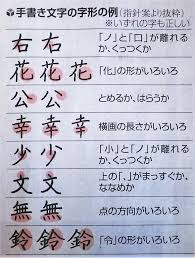 手書き文字の字形の例（指針案より抜粋）
※いずれの字も正しい
右 右 「ノ」と「口」が離れるか、くっつくか
花 花 花 「化」の形がいろいろ
公 公 とめるか、はらうか
幸 幸 幸 横画の長さがいろいろ
少 少 「小」と「ノ」が離れるか、くっつくか
文 文 上の「、」がまっすぐか、ななめか
無 無 無 点の方向がいろいろ
鈴 鈴 鈴 「令」の形がいろいろ